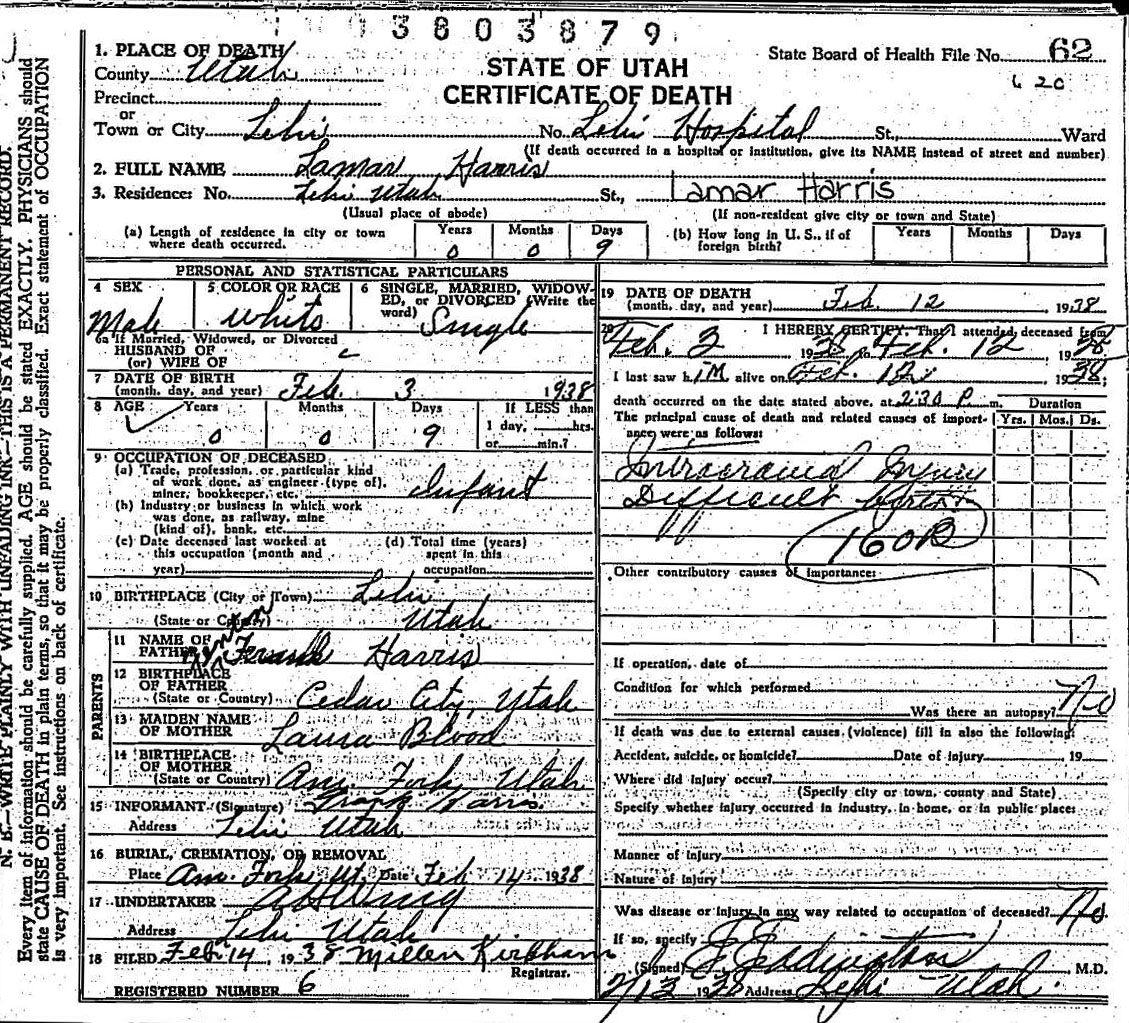 3803879
1. PLACE OF DEATH
County Utah
STATE OF UTAH
CERTIFICATE OF DEATH
State Board of Health File No. 62
20
Precinct
or
Town or City Lehi No. Lehi Hospital St., Ward
(If death occurred in a hospital or institution, give its NAME instead of street and number)
2. FULL NAME Lamar Harris
3. Residence: No. Lehi Utah St., Lamar Harris
(Usual place of abode) (If non-resident give city or town and State)
(a) Length of residence in city or town where death occurred. Years 0 Months 0 Days 9
(b) How long in U. S., if of foreign birth? Years Months Days
PERSONAL AND STATISTICAL PARTICULARS
4 SEX Male
5 COLOR OR RACE White
6 SINGLE, MARRIED, WIDOWED, or DIVORCED (Write the word) Single
6a If Married, Widowed, or Divorced
HUSBAND OF
(or) WIFE OF
7 DATE OF BIRTH
(month, day, and year) Feb. 3 1938
8 AGE Years 0 Months 0 Days 9 If LESS than 1 day, hrs. or min.?
9 OCCUPATION OF DECEASED
(a) Trade, profession, or particular kind
of work done, as engineer (type of),
miner, bookkeeper, etc. Infant
(b) Industry or business in which work
was done, as railway, mine
(kind of), bank, etc.
(c) Date deceased last worked at this occupation (month and year)
(d) Total time (years) spent in this occupation
10 BIRTHPLACE (City or Town) Lehi
(State or County) Utah
PARENTS
11 NAME OF
FATHER Frank Harris
12 BIRTHPLACE
OF FATHER
(State or Country) Cedar City, Utah
13 MAIDEN NAME
OF MOTHER Laura Blood
14 BIRTHPLACE
OF MOTHER
(State or Country) Am. Fork Utah
15 INFORMANT (Signature) Frank Harris
Address Lehi Utah
16 BURIAL, CREMATION, OR REMOVAL
Place Am. Fork Ut. Date Feb 14 1938
17 UNDERTAKER
Address Lehi Utah
18 FILED Feb 14, 1938 Millen Kirkham
Registrar.
REGISTERED NUMBER 6
19 DATE OF DEATH
(month, day, and year) Feb. 12, 1938
20 I HEREBY CERTIFY, That I attended deceased from
Feb. 2 1938 to Feb. 12 1938
I last saw h im alive on Feb. 12, 1938;
death occurred on the date stated above, at 2:30 P m. Duration
The principal cause of death and related causes of importance were as follows: Yrs. Mos. Ds.
Intracranial Injury
Difficult birth
160B
Other contributory causes of importance:
If operation, date of
Condition for which performed
Was there an autopsy? No
If death was due to external causes (violence) fill in also the following:
Accident, suicide, or homicide? Date of injury 19
Where did injury occur?
(Specify city or town, county and State)
Specify whether injury occurred in industry, in home, or in public place:
Manner of injury
Nature of injury
Was disease or injury in any way related to occupation of deceased? No
If so, specify
(Signed) Eddington M.D.
2/13 1938 Address Lehi Utah.
N. B.—WRITE PLAINLY WITH UNFADING INK—THIS IS A PERMANENT RECORD.
Every item of information should be carefully supplied. AGE should be stated EXACTLY. PHYSICIANS should
state CAUSE OF DEATH in plain terms, so that it may be properly classified. Exact statement of OCCUPATION
is very important. See instructions on back of certificate.